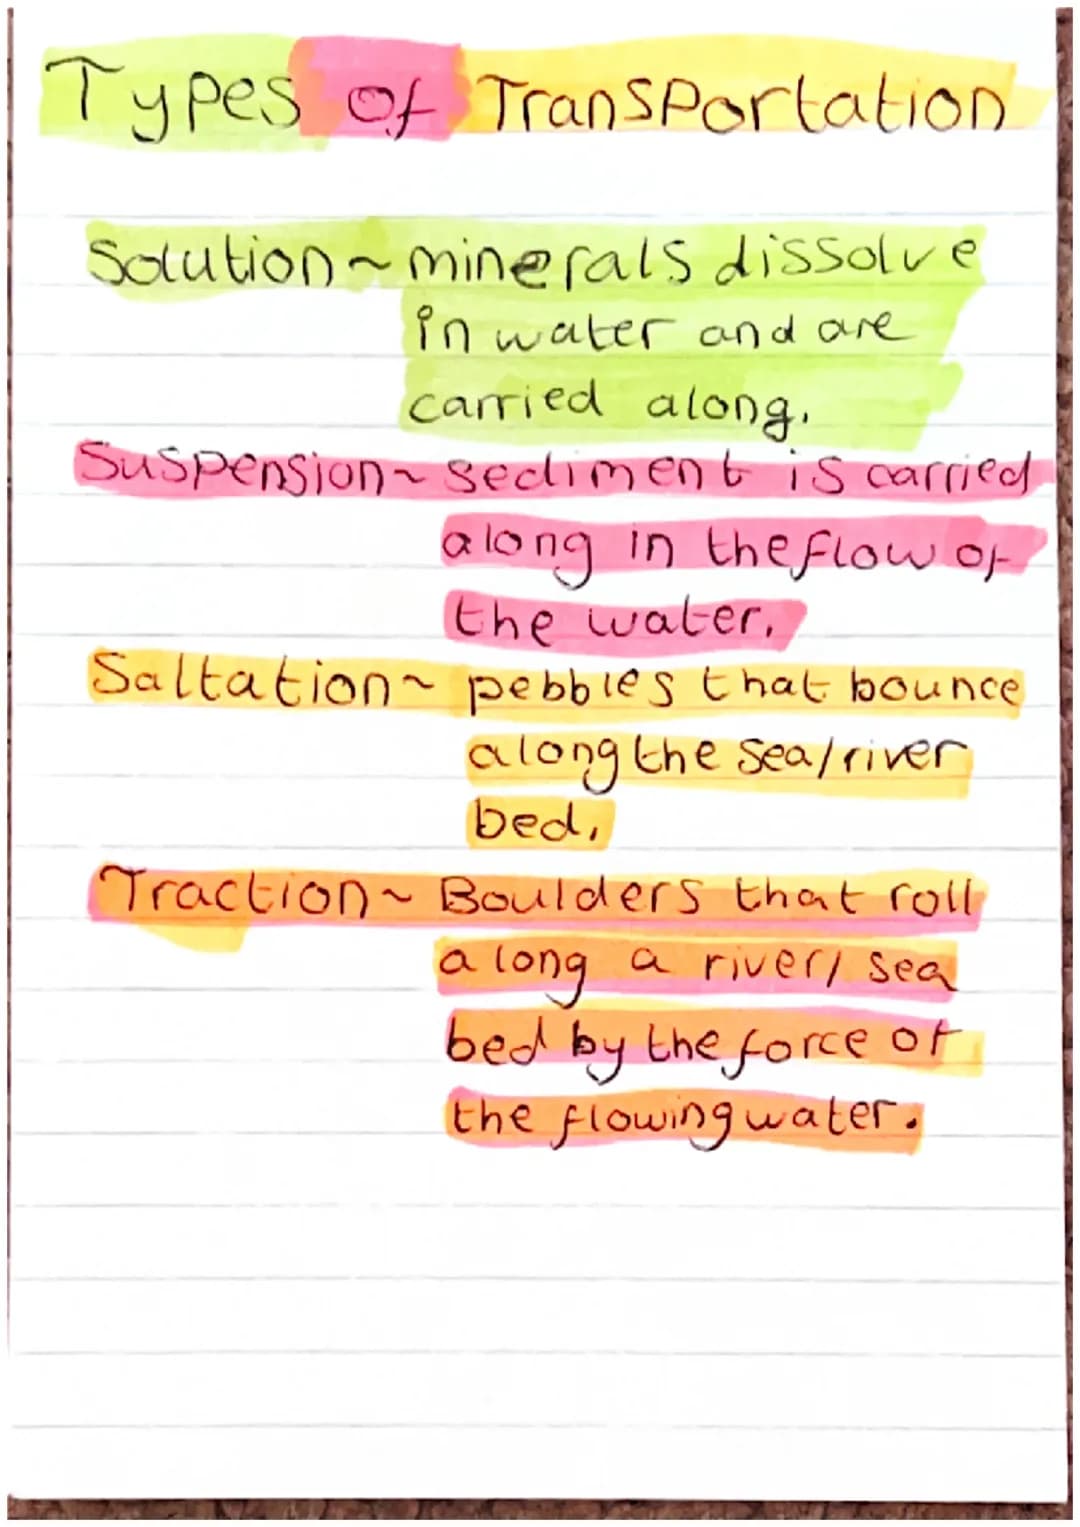 Types of Transportation
Solution ~ minerals dissolve
in water and are
carried along.
Suspension ~ sediment is carried
along in the flow of
the water.
Saltation ~ pebbles that bounce
along the sea/river
bed.
Traction ~ Boulders that roll
along a river/sea
bed by the force of
the flowing water.